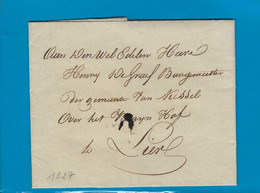 Aan Den Wel Edelen Heere
Henry De Graef Burgemeester
der gemeente Van Kessel
Over het Hof
te Lier
1827